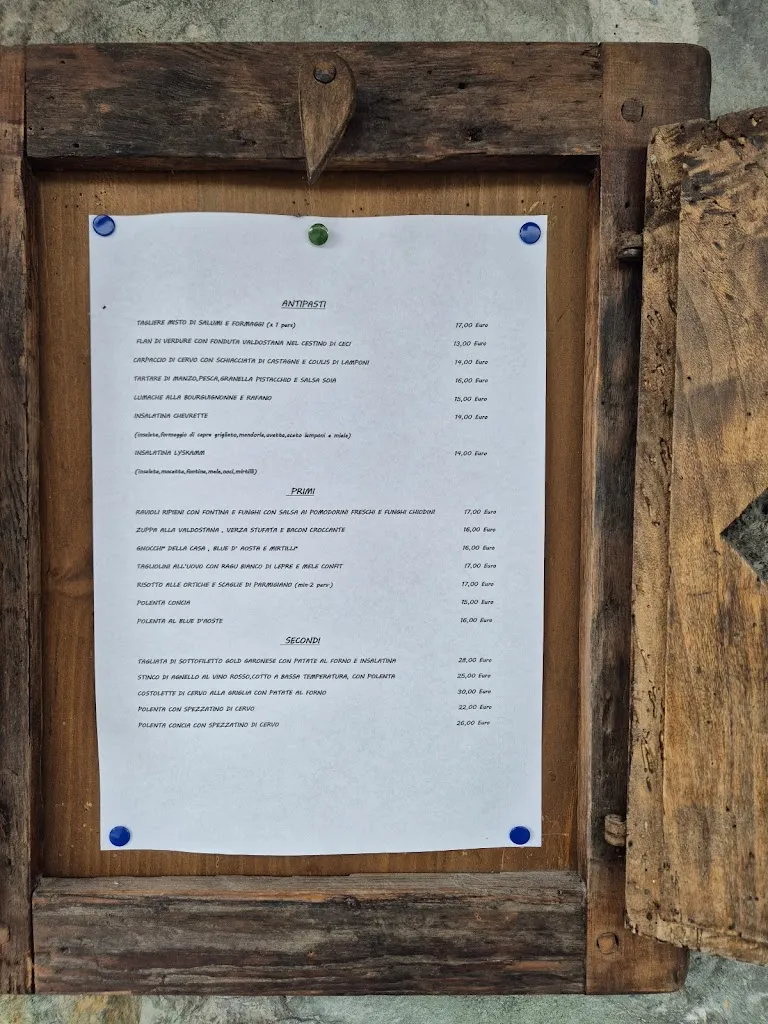 ANTIPASTI
TAGLIERE MISTO DI SALUMI E FORMAGGI (x 1 pers) 17,00 Euro
FLAN DI VERDURE CON FONDUTA VALDOSTANA NEL CESTINO DI CECI 13,00 Euro
CARPACCIO DI CERVO CON SCHIACCIATA DI CASTAGNE E COULIS DI LAMPONI 14,00 Euro
TARTARE DI MANZO,PESCA,GRANELLA PISTACCHIO E SALSA SOIA 16,00 Euro
LUMACHE ALLA BOURGUIGNONNE E RAFANO 15,00 Euro
INSALATINA CHEVRETTE 14,00 Euro
(insalata,formaggio di capra grigliato,mandorle,uvetta,aceto lamponi e miele)
INSALATINA LYSKAMM 14,00 Euro
(insalata,mocetta,fontina,mele,noci,mirtilli)
PRIMI
RAVIOLI RIPIENI CON FONTINA E FUNGHI CON SALSA AI POMODORINI FRESCHI E FUNGHI CHIODINI 17,00 Euro
ZUPPA ALLA VALDOSTANA , VERZA STUFATA E BACON CROCCANTE 16,00 Euro
GNOCCHI* DELLA CASA , BLUE D' AOSTA E MIRTILLI* 16,00 Euro
TAGLIOLINI ALL'UOVO CON RAGU BIANCO DI LEPRE E MELE CONFIT 17,00 Euro
RISOTTO ALLE ORTICHE E SCAGLIE DI PARMIGIANO (min 2 pers) 17,00 Euro
POLENTA CONCIA 15,00 Euro
POLENTA AL BLUE D'AOSTE 16,00 Euro
SECONDI
TAGLIATA DI SOTTOFILETTO GOLD GARONESE CON PATATE AL FORNO E INSALATINA 28,00 Euro
STINCO DI AGNELLO AL VINO ROSSO,COTTO A BASSA TEMPERATURA, CON POLENTA 25,00 Euro
COSTOLETTE DI CERVO ALLA GRIGLIA CON PATATE AL FORNO 30,00 Euro
POLENTA CON SPEZZATINO DI CERVO 22,00 Euro
POLENTA CONCIA CON SPEZZATINO DI CERVO 26,00 Euro